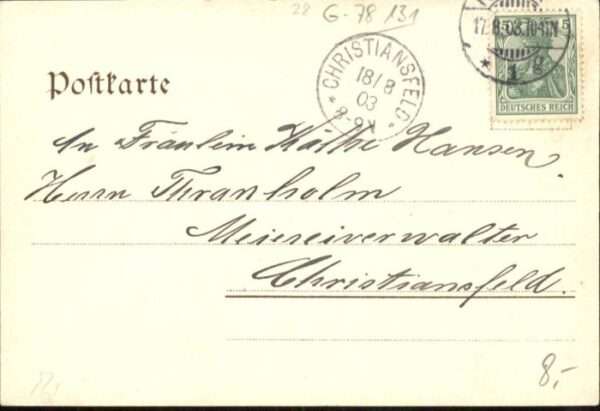 28 G-78 131
17.8.03.10-11N
* 1 g
5 5
DEUTSCHES REICH
Postkarte
* CHRISTIANSFELD *
18/8
03
8-9V
An Fräulein Käthe Hansen.
Herrn Thranholm
Meiereiverwalter
Christiansfeld.
8,-